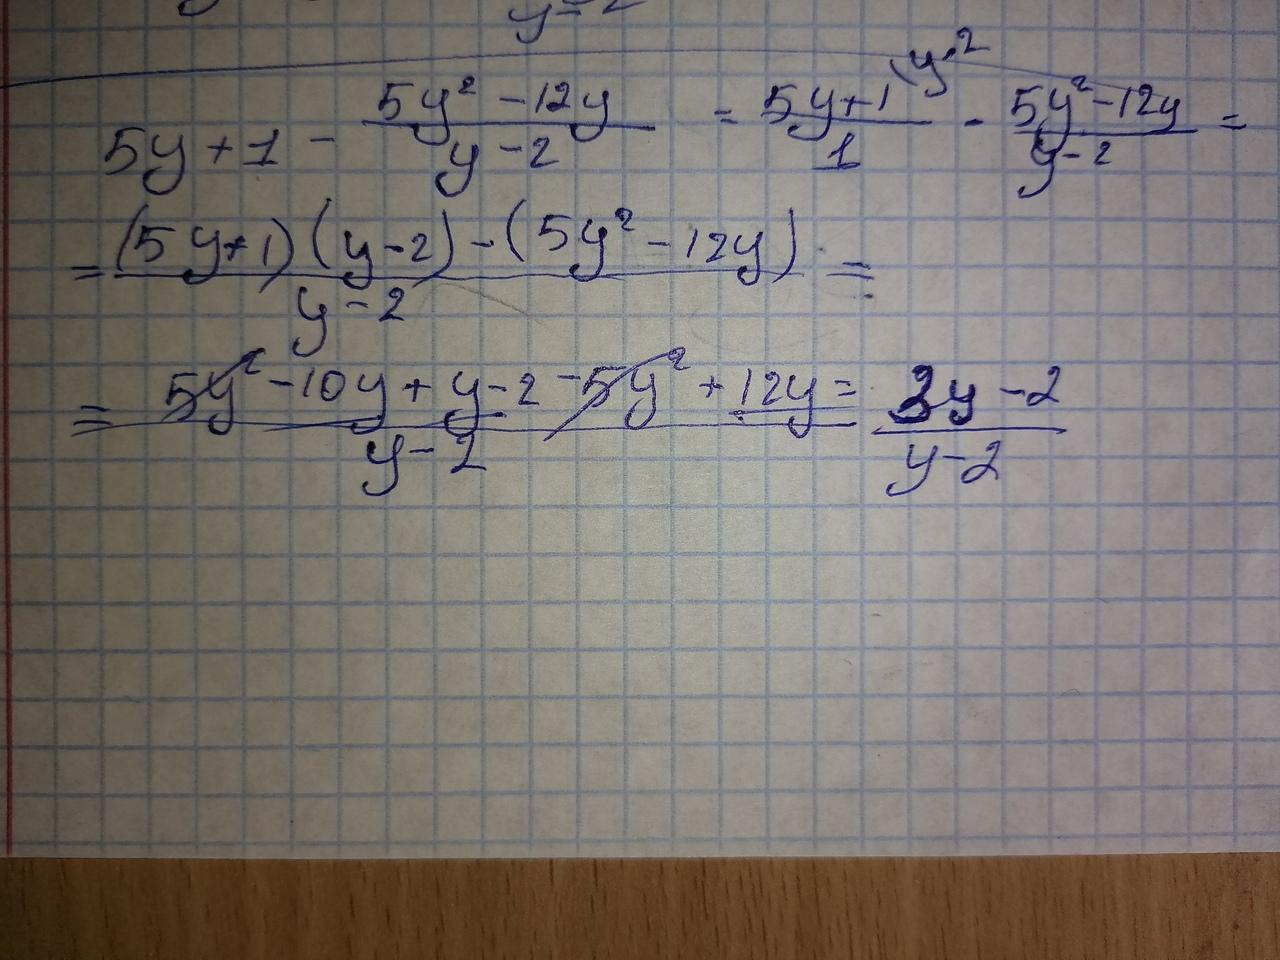 y-2
5y+1 - (5y² - 12y)/(y-2) = (5y+1)/1 \y-2 - (5y² - 12y)/(y-2) =
= ((5y+1)(y-2) - (5y² - 12y))/(y-2) =
= (5y² - 10y + y - 2 - 5y² + 12y)/(y-2) = (3y-2)/(y-2)